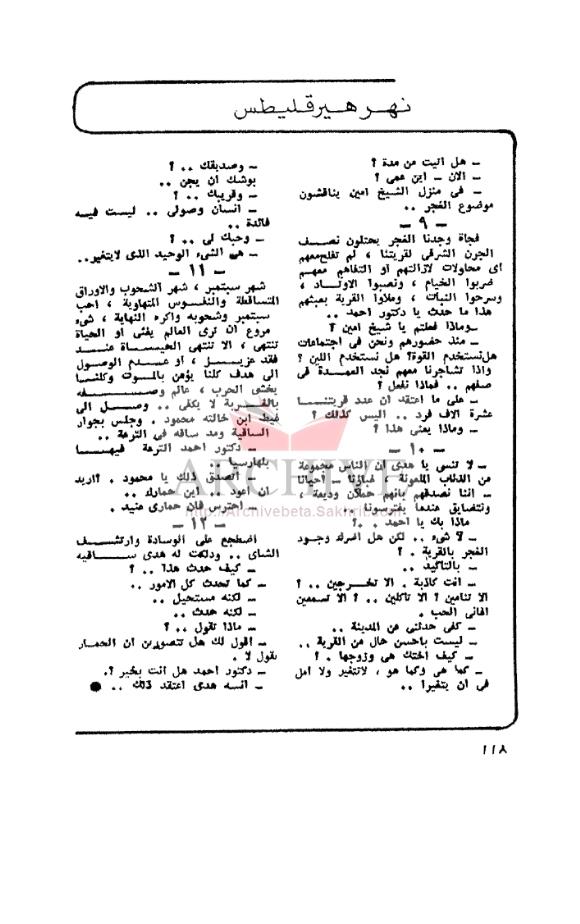 نهر هيرقليطس
ـ هل اتيت من مدة ؟
ـ الان ـ اين عمى ؟
ـ فى منزل الشيخ امين يناقشون
موضوع الفجر ..
ـ ٩ ـ
فجاة وجدنا الفجر يحتلون نصف
الجرن الشرقى لقريتنا ، لم تفلح معهم
أى محاولات لازالتهم أو التفاهم معهم
ضربوا الخيام ، ونصبوا الاوتاد ،
وسرحوا النبات ، وملاوا القرية بعبثهم
هذا ما حدث يا دكتور احمد ..
ـ وماذا فعلتم يا شيخ امين ؟
ـ منذ حضورهم ونحن فى اجتماعات
هل نستخدم القوة؟ هل نستخدم اللين ؟
واذا تشاجرنا معهم نجد العمدة فى
صفهم .. فماذا نفعل ؟
ـ على ما اعتقد ان عدد قريتنا
عشرة الاف فرد .. اليس كذلك ؟
ـ وماذا يعنى هذا ؟
ـ ١٠ ـ
ـ لا تنسى يا هدى ان الناس مجموعة
من الذئاب الملعونة .. احيانا
ـ اننا نصدقهم بانهم حملان وديعة ،
ونتضايق عندما يفترسونا ..
ماذا بك يا احمد .. ؟
ـ لا شىء .. لكن هل اسرك وجود
الفجر بالقرية . ؟
ـ بالتأكيد ..
ـ انت كاذبة . الا تخرجين .. ؟
الا تنامين ؟ الا تاكلين .. ؟ الا تسمعين
اغانى الحب .
ـ كفى حدثنى عن المدينة ..
ـ ليست باحسن حال من القرية ..
ـ كيف اختك هى وزوجها . ؟
ـ كما هى وكما هو ، لاتتغير ولا امل
فى ان يتغيرا ..
ـ وصديقك .. ؟
يوشك ان يجن ..
ـ وقريبك .. ؟
ـ انسان وصولى .. ليست فيه
فائدة ..
ـ وحبك لى .. ؟
ـ هى الشىء الوحيد الذى لايتغير..
ـ ١١ ـ
شهر سبتمبر ، شهر الشحوب والاوراق
المتساقطة والنفوس المتهاوية ، احب
سبتمبر وشحوبه واكره النهاية ، شىء
مروع ان ترى العالم يفنى أو الحياة
تنتهى ، الا تنتهى الحياة عند
فقد عزيز ، أو عدم الوصول
الى هدف كلنا يؤمن بالموت وكلنا
يخشى الحرب ، عالم وصفه
بالقربة لا يكفى .. وصل الى
غيط ابن خالته محمود . وجلس بجوار
الساقية ومد ساقه فى الترعة ..
ـ دكتور احمد الترعة فيها
بلهارسيا ..
ـ اتصدق ذلك يا محمود . ؟اريد
ان اعود .. اين حمارك ..
ـ احترس فان حمارى عنيد .
ـ ١٢ ـ
اضطجع على الوسادة وارتشف
الشاى .. ودلكت له هدى ساقيه
ـ كيف حدث هذا .. ؟
ـ كما تحدث كل الامور ..
ـ لكنه مستحيل ..
ـ لكنه حدث ..
ـ ماذا تقول .. ؟
ـ اقول لك هل تتصورين ان الحمار
يقول لا .
ـ دكتور احمد هل أنت بخير ؟.
ـ انسه هدى اعتقد ذلك .. ●
ARCHIVE
http://Archivebeta.Sakhrit.com
١١٨